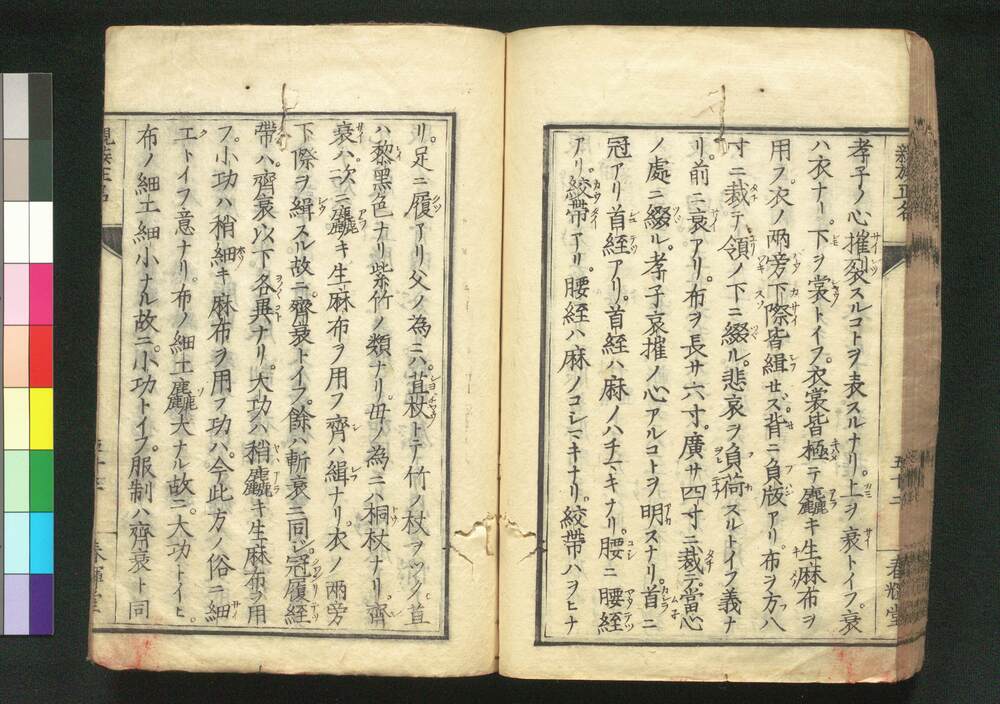 親族正名
五十二
春輝堂
孝子ノ心摧裂スルコトヲ表スルナリ。上ヲ衰トイフ。衰
ハ衣ナリ。下ヲ裳トイフ。衣裳皆極テ麤キ生麻布ヲ
用フ衣ノ兩旁下際皆緝セズ。背ニ負版アリ。布ヲ方八
寸ニ裁テ領ノ下ニ綴ル。悲哀ヲ負荷スルトイフ義ナ
リ。前ニ衰アリ。布ヲ長サ六寸。廣サ四寸ニ裁テ。當心
ノ處ニ綴ル。孝子哀摧ノ心アルコトヲ明スナリ。首ニ
冠アリ。首絰アリ。首絰ハ麻ノハチマキナリ。腰ニ腰絰
アリ。絞帶アリ。腰絰ハ麻ノコシマキナリ。絞帶ハヲヒナ
リ。足ニ履アリ父ノ為ニハ。苴杖トテ竹ノ杖ヲツク。苴
ハ黎黑色ナリ紫竹ノ類ナリ。毋ノ為ニハ桐杖ナリ。齊
衰ハ。次ニ麤キ生麻布ヲ用フ齊ハ緝ナリ。衣ノ兩旁
下際ヲ緝スル故ニ。齊衰トイフ。餘ハ斬衰ニ同ジ。冠履絰
帶ハ。齊衰以下各異ナリ。大功ハ稍麤キ生麻布ヲ用
フ。小功ハ稍細キ麻布ヲ用フ功ハ。今此方ノ俗ニ細
工トイフ意ナリ。布ノ細工麤大ナル故ニ。大功トイヒ。
布ノ細工細小ナル故ニ。小功トイフ。服制ハ齊衰ト同
親族正名
春輝堂